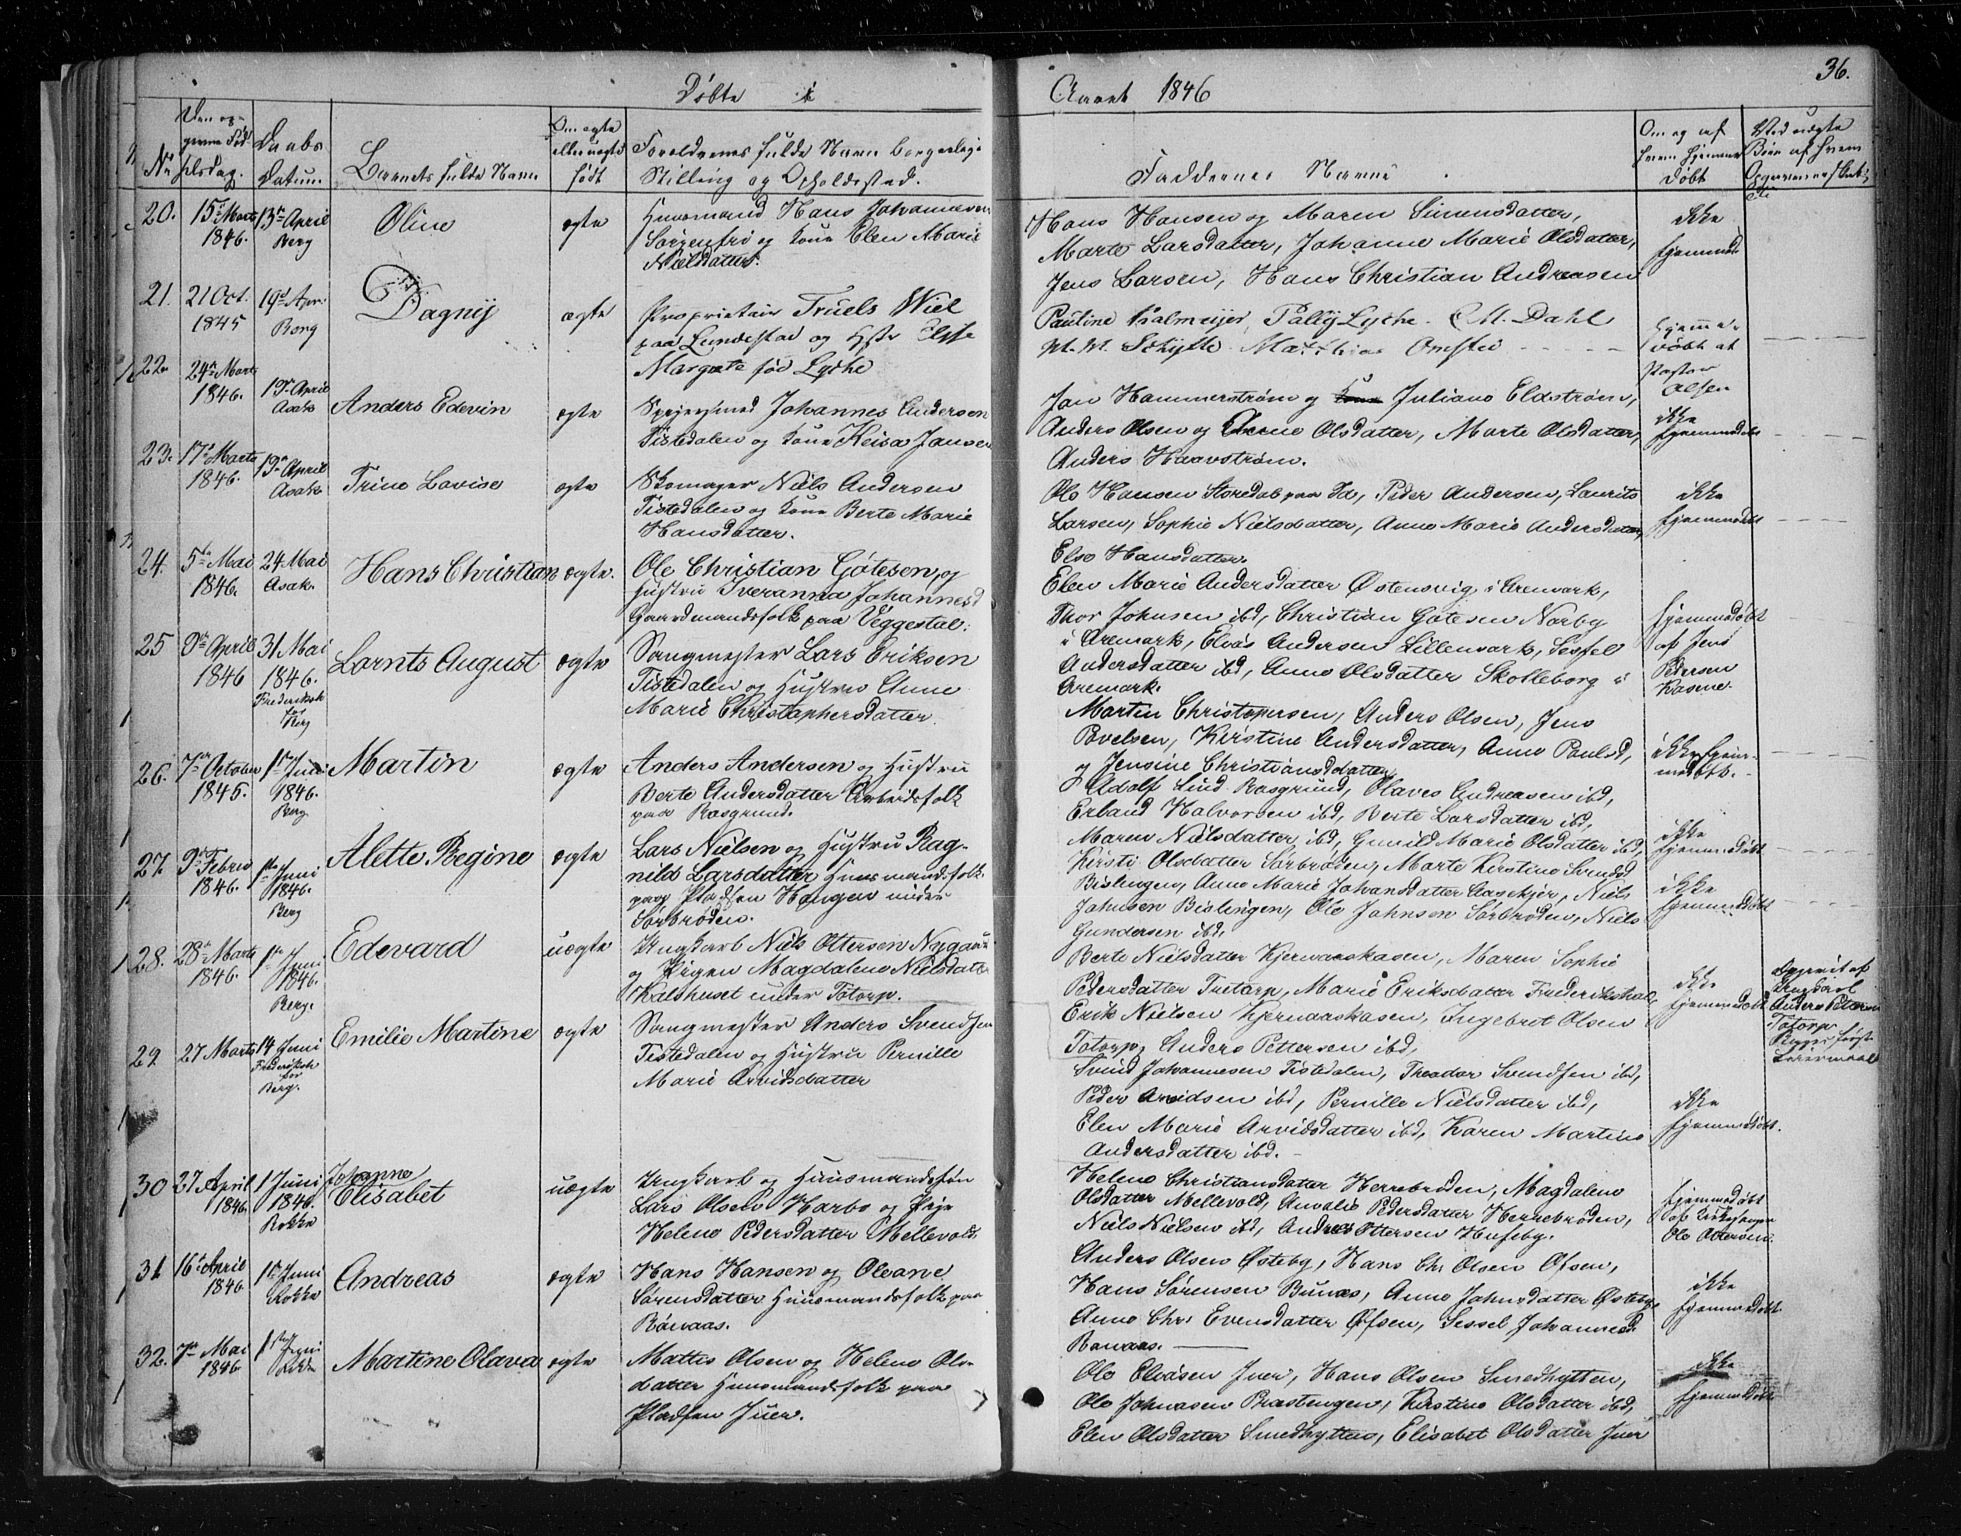 Døbte i
Aaret 1846
36.
No.
Den opgivne Fødselsdag.
Daabs Datum.
Barnets fulde Navn
Om ægte eller uægte født
Forældrenes fulde Navne borgerlige
Stilling og Opholdssted.
Faddernes Navne
Om og af hvem hjemmedøbt
Ved uægte Børn af hvem
20. 15de Marts 1846. 13de April Berg
Oline
ægte
Huusmand Hans Johannesen
Sørgenfri og Kone Elen Marie
Nielsdatter.
Hans Hansen og Maren Simensdatter,
Marte Larsdatter, Johanne Marie Olsdatter,
Jens Larsen, Hans Christian Andreasen
ikke
hjemmed.
21. 21 Oct. 1845 19de Apr. Berg
Dagny
ægte
Proprietair Truels Wiel
paa Lundestad og Hstr Else
Margrete fød Lyche
Pauline Kalmeijer, Polly Lyche. C. M. Dahl
Mathias Omsted
hjemmedøbt af
Pastor
22. 24de Marts 1846. 19de April Asak
Anders Edevin
ægte
Spigersmed Johannes Andersen
Tistedalen og Kone Keisa Jansen
Jan Hammerstrøm og Kone Juliane Eldstrøm,
Anders Olsen og Olsdatter, Marte Olsdatter,
Anders Haavstrøm.
ikke
hjemmedøbt
23. 17de Marts 1846. 19de April Asak
Trine Lovise
ægte
Skomager Niels Andersen
Tistedalen og Kone Berte Marie
Hansdatter.
Ole Hansen Storedal paa Id, Peder Andersen, Laurits
Larsen, Sophie Nielsdatter, Anne Marie Andersdatter,
Else Hansdatter.
ikke
hjemmedøbt
24. 5te Mai 1846. 24 Mai Asak.
Hans Christian
ægte.
Ole Christian Gøtesen, og
Hustru Iveranna Johannesd
Gaardmandsfolk paa Veggestal.
Elen Marie Andersdatter Østensvig i Aremark,
Thor Johnsen ibd, Christian Gøtesen Norby
i Aremark, Elias Andersen Lillemark, Sissel
Andersdatter ibd, Anne Olsdatter Skolleborg i
Aremark.
hjemmedøbt
af Jens
Pedersen
Kasene.
25 9de April 1846 31 Mai 1846. Frederikshald for Berg
Lornts August
ægte
Saugmester Lars Eriksen
Tistedalen og Hustru Anne
Marie Christophersdatter.
Martin Christopersen, Anders Olsen, Jens
Povelsen, Kirstine Andersdatter, Anne Paulsd,
og Jensine Christiansdatter
ikke hjemmedøbt.
26. 7de October 1845. 1ste Juni 1846. Berg
Martin
ægte
Anders Andersen og Hustru
Berte Andersdatter Arbeidsfolk
paa Rasgrund.
Adolf Lund Rasgrund, Olaves Andreasen ibd,
Erland Halvorsen ibd, Berte Larsdatter ibd,
Maren Nielsdatter ibd, Gunild Marie Olsdatter ibd,
ikke
hjemmedøbt
27. 9de Febru 1846. 1ste Juni 1846. Berg
Alette Regine
ægte
Lars Nielsen og Hustru Ragnild Larsdatter Huusmandsfolk
paa Pladsen Haugen under
Sørbrøden.
Kirsti Olsdatter Sørbrøden, Marte Kirstine Svendsd
Bislingen, Anne Marie Johansdatter Aaskjer, Niels
Johnsen Bislingen, Ole Johnsen Sørbrøden, Niels
Gundersen ibd.
ikke
hjemmedøbt
28. 28de Marts 1846. 1ste Juni 1846. Berg.
Edevard
uægte
Ungkarl Niels Ottersen Nygaard
og Pigen Magdalene Nielsdatter
Kalshuset under Totorp.
Berte Nielsdatter Kjernaaskasen, Maren Sophie
Pedersdatter Tustorp, Marie Eriksdatter Frederikshald,
Erik Nielsen Kjernaaskasen, Ingebret Olsen
Totorp, Anders Pettersen ibd,
ikke
hjemmedøbt
Opgivet af
Anders Pettersen
Totorp
Begges første
Leiermaal
29 27 Marts 14 Juni Frederiksh for Berg.
Emilie Martine
ægte
Saugmester Anders Svendsen
Tistedalen og Hustru Pernille
Marie Arvidsdatter
Svend Johannesen Tistedalen, Theodor Svendsen ibd,
Peder Arvidsen ibd, Pernille Nielsdatter ibd,
Elen Marie Arvidsdatter ibd, Karen Martine
Andersdatter ibd.
ikke
hjemmedøbt.
30 27 April 1846 1 Juni 1846. Rokke
Johanne
Elisabet
uægte
Ungkarl og Huusmandssøn
Lars Olsen Harbo og Pige
Helene Pedersdatter Mellevold.
Helene Christiansdatter Herrebrøden, Magdalene
Olsdatter Mellevold, Amalie Pedersdatter Herrebrøden,
Niels Nielsen ibd, Andreas Ottersen Huseby.
hjemmedøbt
af Kirkesanger
Ole Ottersen.
31 16de April 1846 1ste Juni Rokke
Andreas
ægte
Hans Hansen og Oleane
Sørensdatter Huusmandsfolk paa
Rønaas.
Anders Olsen Østeby, Hans Chr Olsen Øfsen,
Hans Sørensen Buaas, Anne Johnsdatter Østeby,
Anne Chr. Evensdatter Øfsen, Sessel Johannesd.
Rønaas.
ikke
hjemmedøbt
32. 7de Mai 1846. 1ste Juni Rokke
Martine Olava
ægte
Mattis Olsen og Helene Olsdatter Huusmandsfolk paa
Pladsen Juer.
Ole Eliasen Juer, Hans Olsen Smedhytten,
Ole Johnasen Bræstengen, Kirstine Olsdatter ibd,
Elen Olsdatter Smedhytten, Elisabet Olsdatter Juer
ikke
hjemmedøbt